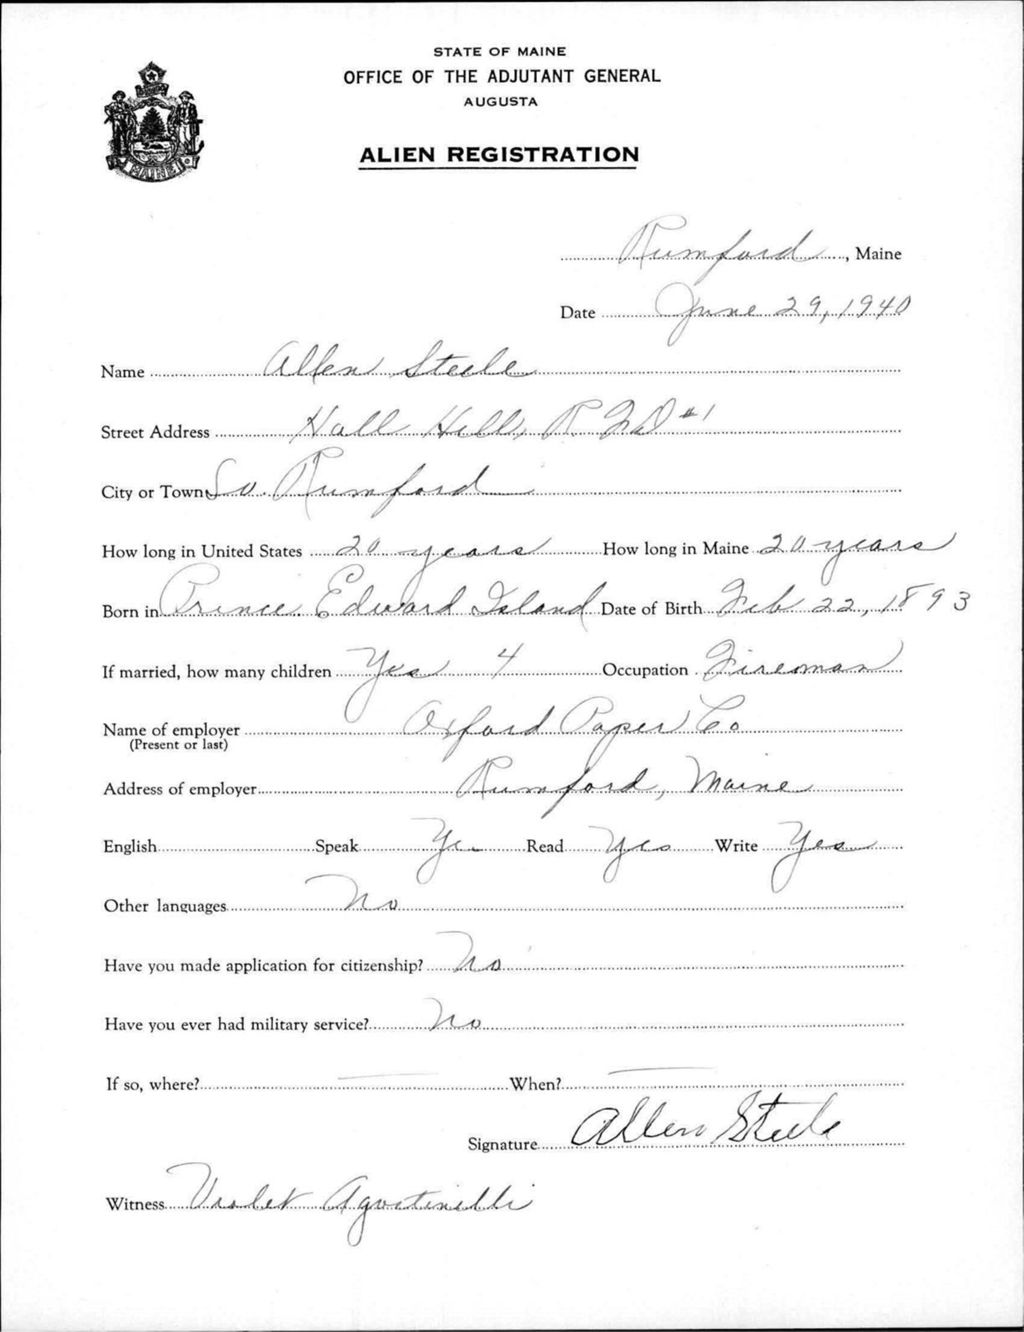 STATE OF MAINE
OFFICE OF THE ADJUTANT GENERAL
AUGUSTA
ALIEN REGISTRATION
MAINE
Rumford, Maine
Date June 29, 1940
Name Allen Steele
Street Address Hall Hill, R F D #1
City or Town So. Rumford
How long in United States 20 years How long in Maine 20 years
Born in Prince Edward Island Date of Birth Feb 22, 1893
If married, how many children Yes 4 Occupation Fireman
Name of employer Oxford Paper Co
(Present or last)
Address of employer Rumford, Maine
English Speak Yes Read Yes Write Yes
Other languages No
Have you made application for citizenship? No
Have you ever had military service? No
If so, where? — When? —
Signature Allen Steele
Witness Violet Agostinelli